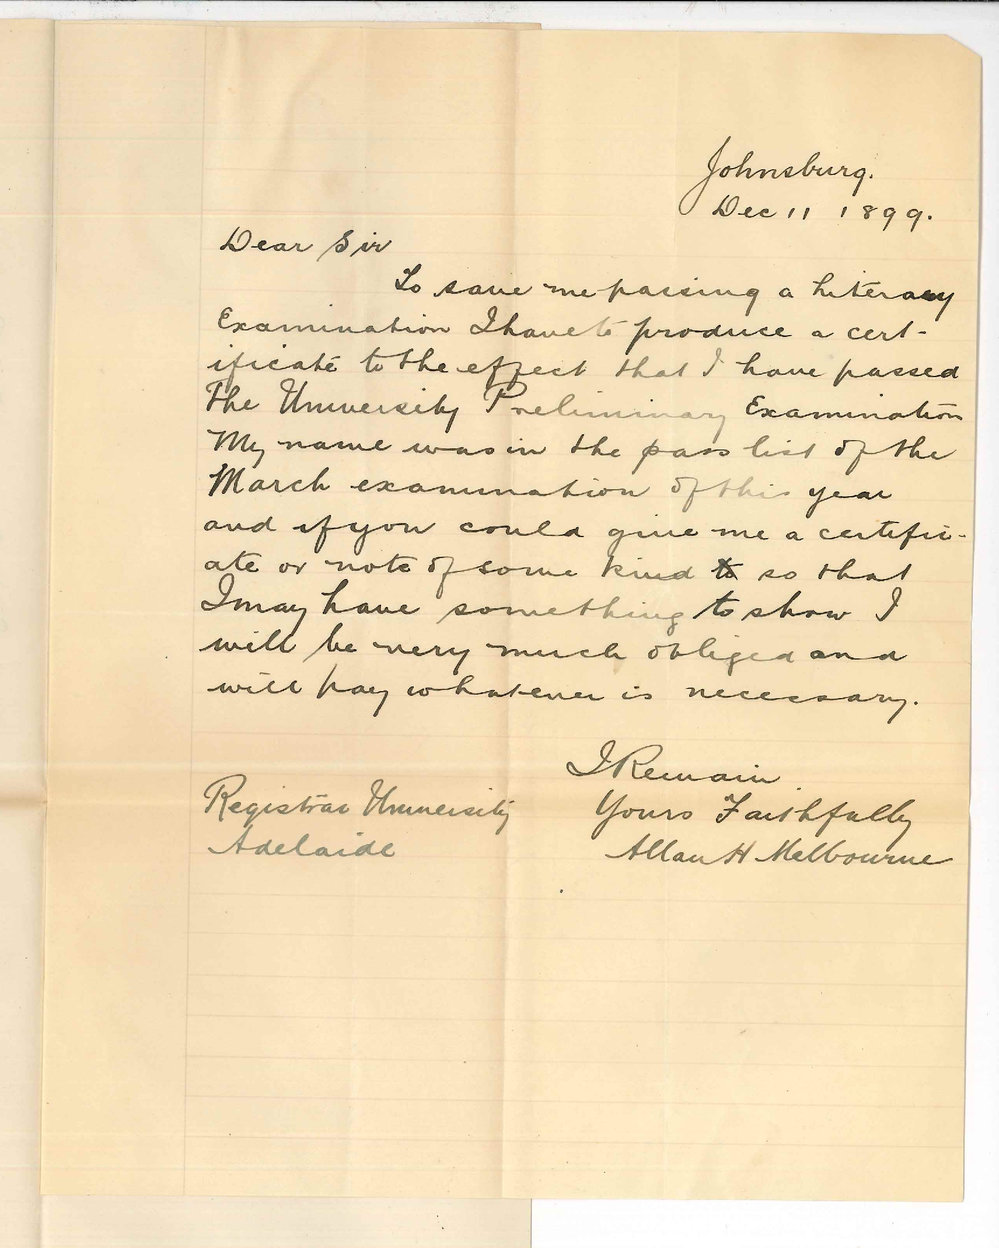 Johnsburg.
Dec 11 1899.
Dear Sir
To save me passing a Literary
Examination I have to produce a cert-
ificate to the effect that I have passed
the University Preliminary Examination
My name was in the pass list of the
March examination of this year
and if you could give me a certific-
ate or note of some kind to so that
I may have something to show I
will be very much obliged and
will pay whatever is necessary.
I Remain
Yours Faithfully
Allan H Melbourne
Registrar University
Adelaide